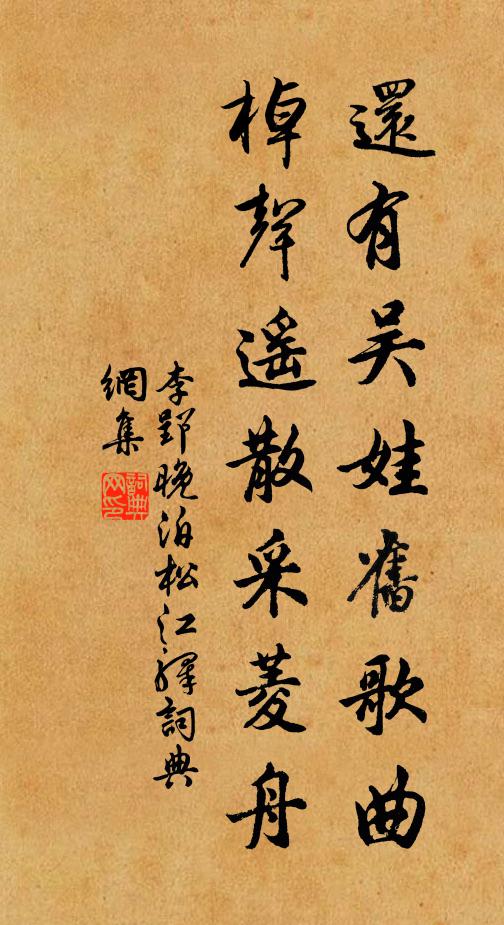 還有吴娃舊歌曲
棹聲遥散采菱舟
李郢晚泊松江驛詞典
網集
詞典
网印